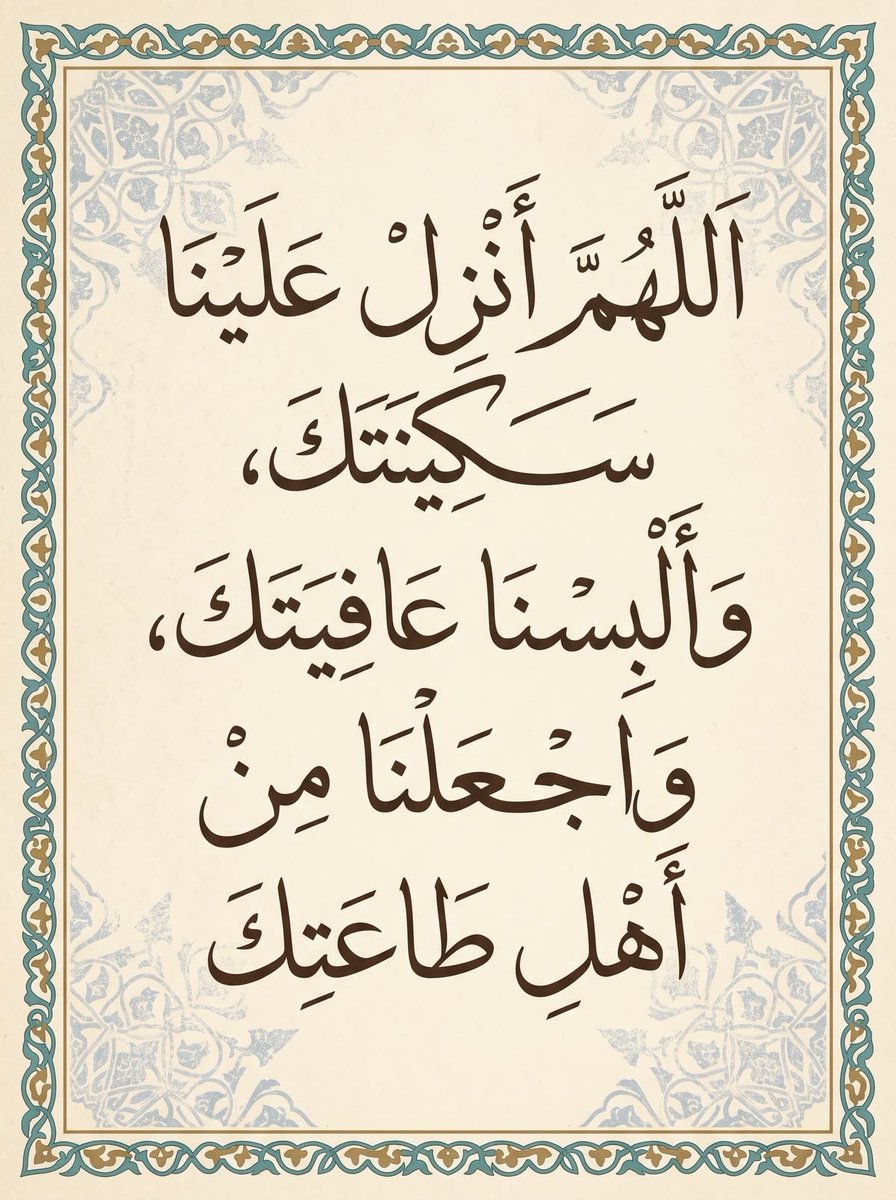 اَللَّهُمَّ أَنْزِلْ عَلَيْنَا
سَكِينَتَكَ،
وَأَلْبِسْنَا عَافِيَتَكَ،
وَاجْعَلْنَا مِنْ
أَهْلِ طَاعَتِكَ